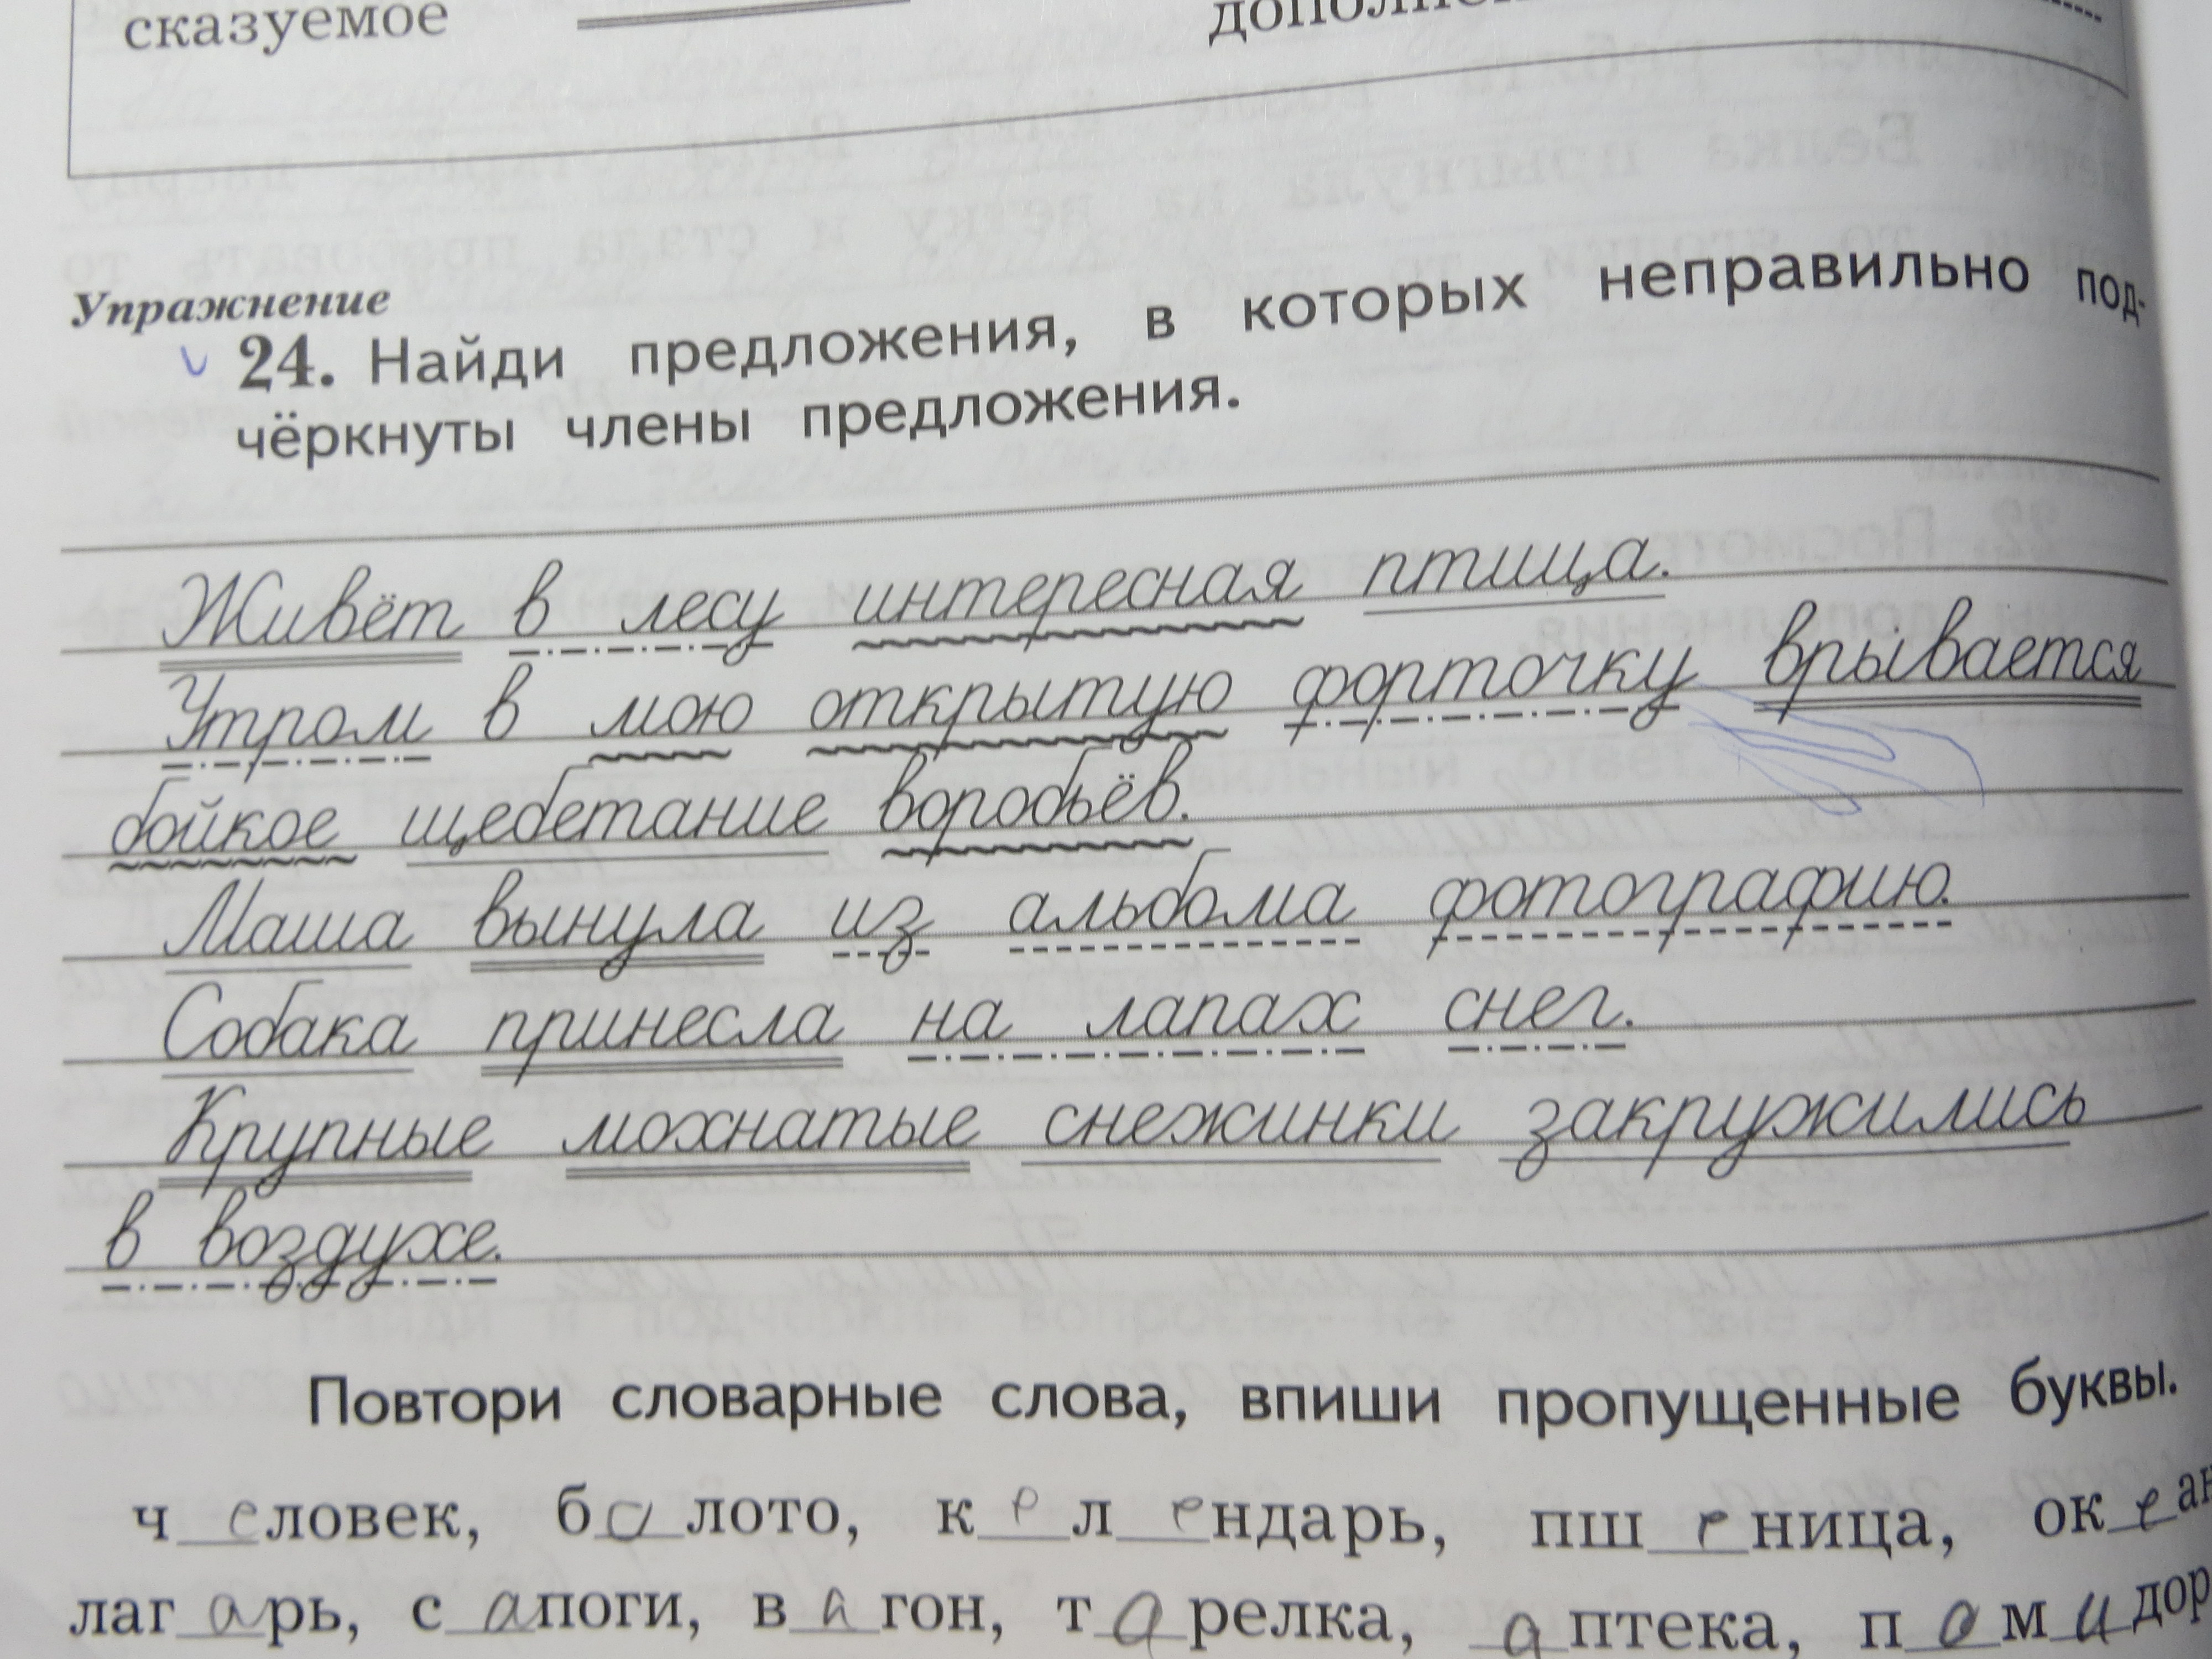 сказуемое
Упражнение
24. Найди предложения, в которых неправильно под-
чёркнуты члены предложения.
Живёт в лесу интересная птица.
Утром в мою открытую форточку врывается
бойкое щебетание воробьёв.
Маша вынула из альбома фотографию.
Собака принесла на лапах снег.
Крупные мохнатые снежинки закружились
в воздухе.
Повтори словарные слова, впиши пропущенные буквы.
ч е ловек, б о лото, к е л е ндарь, пш е ница, ок е ан
лаг а рь, с а поги, в а гон, т а релка, а птека, п о м и дор